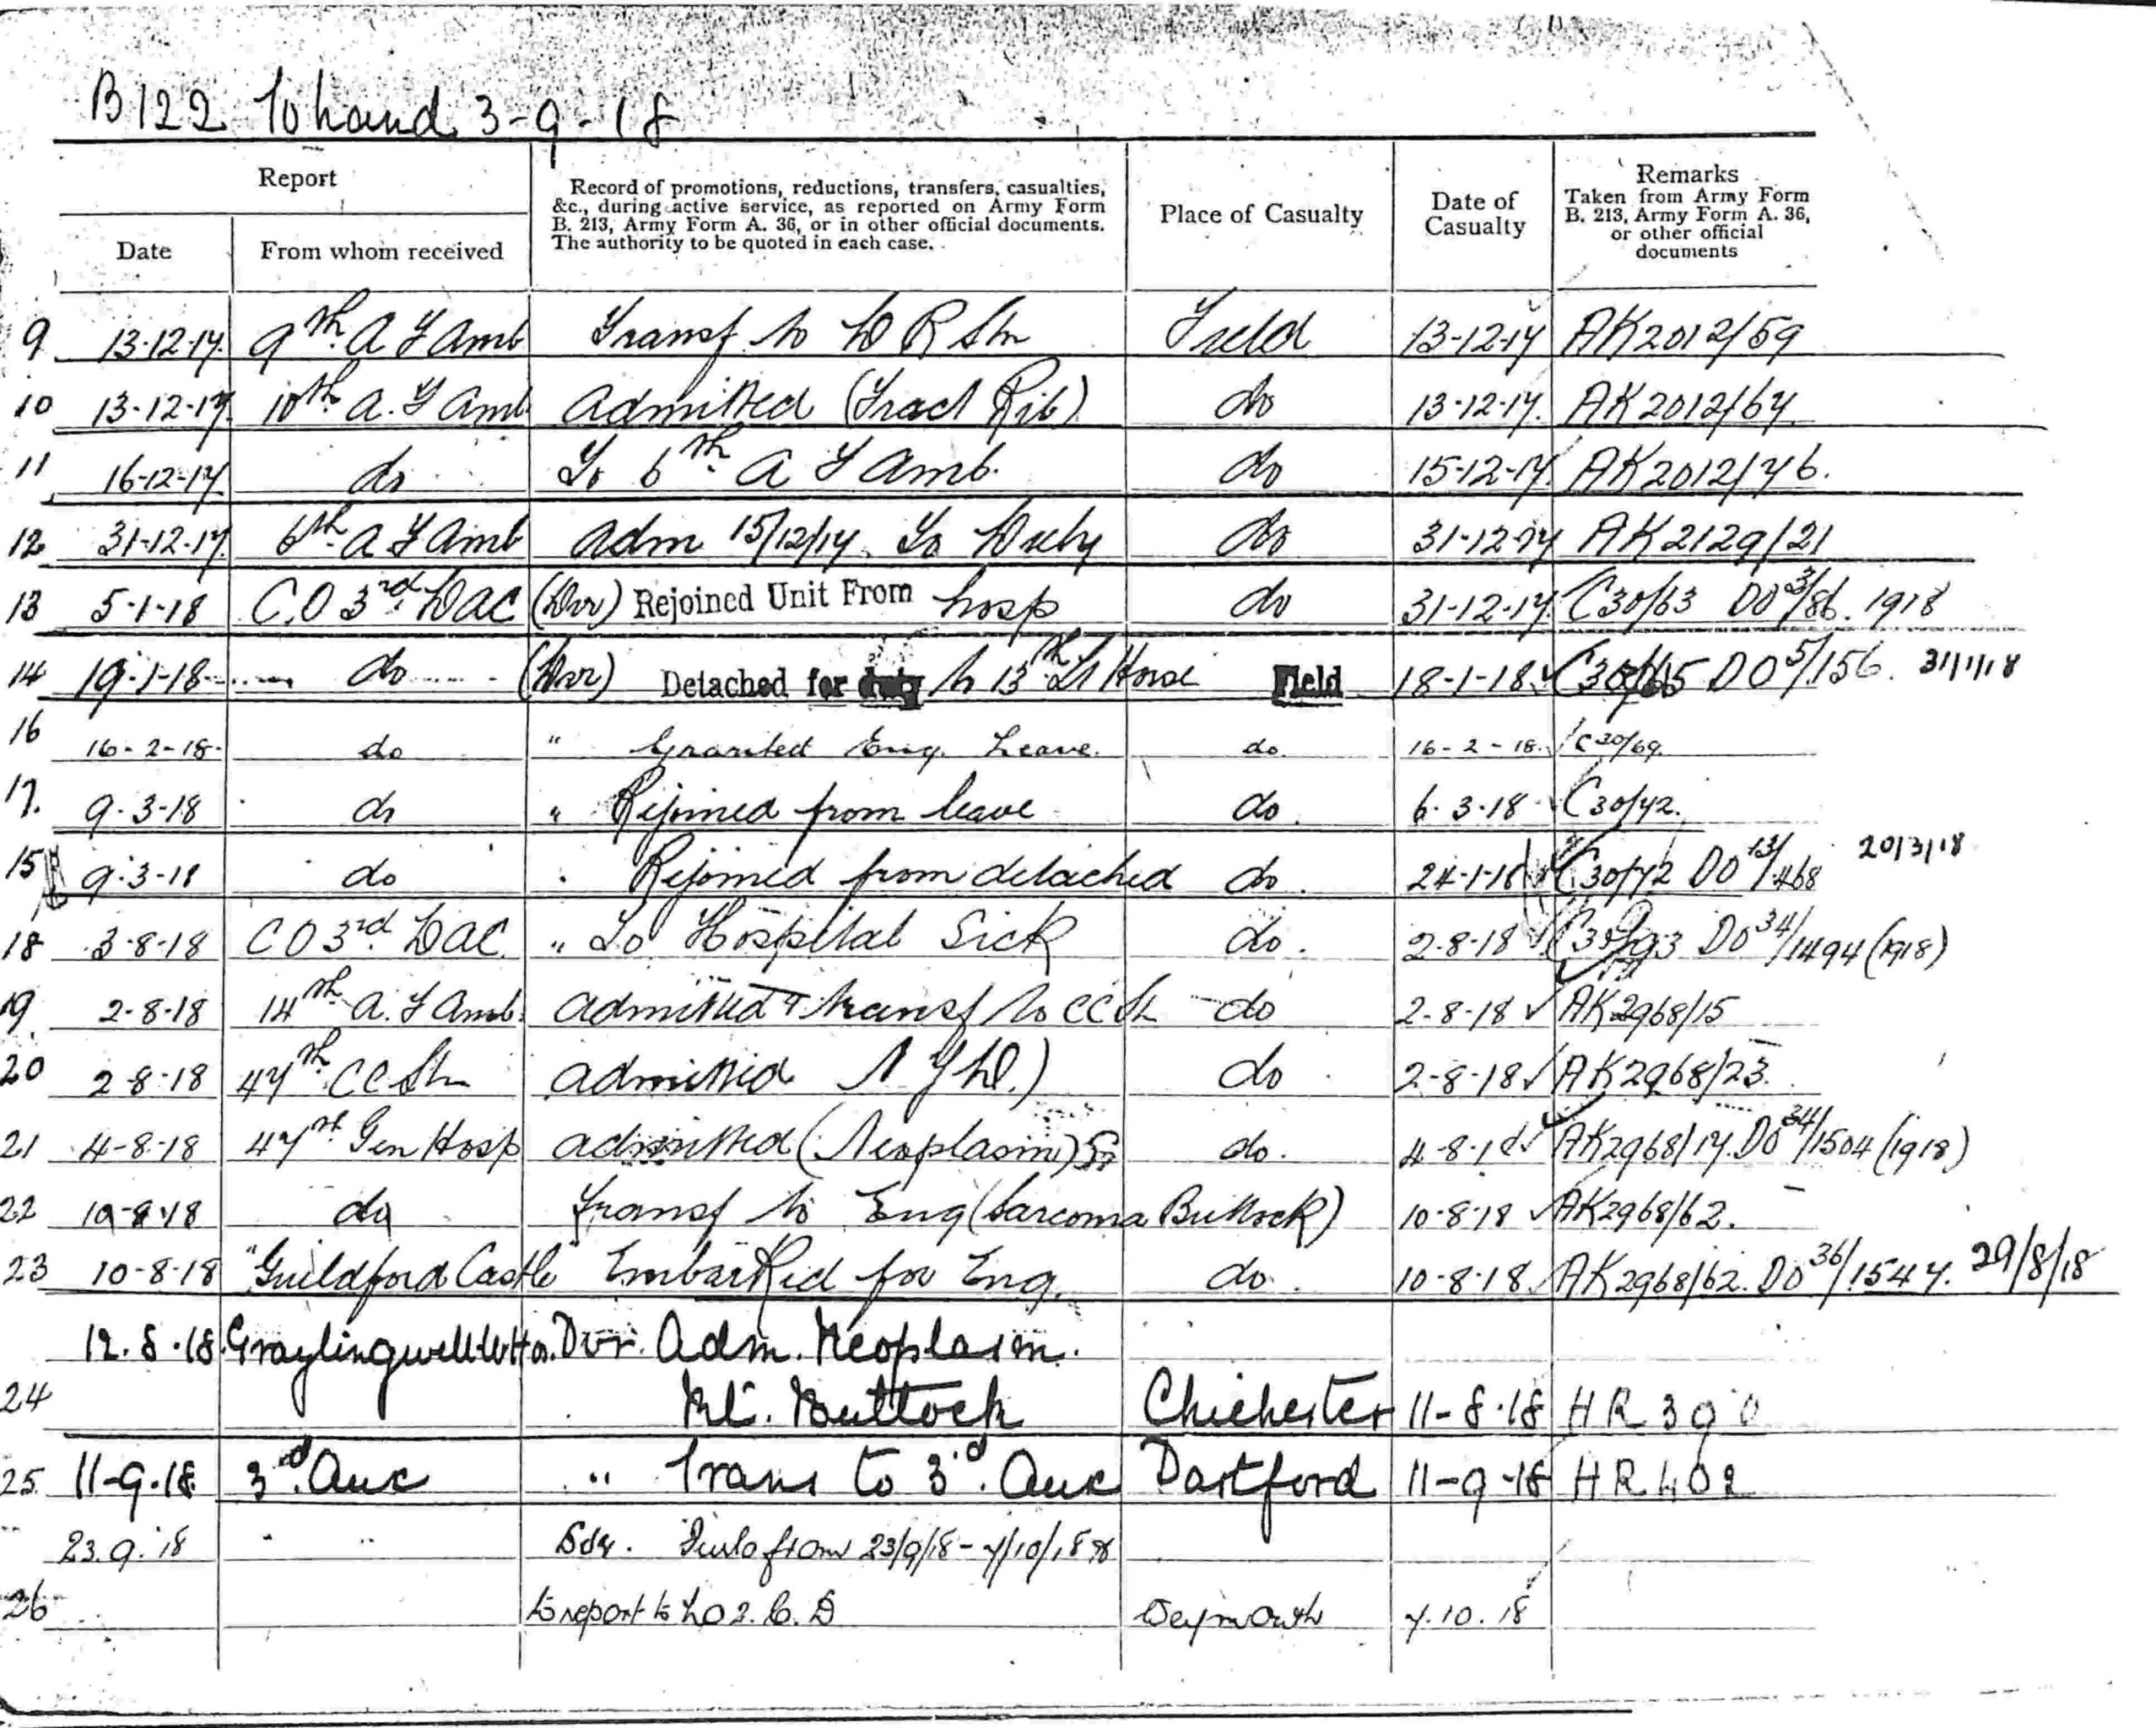 B122 To hand 3-9-18
Report
Date
From whom received
Record of promotions, reductions, transfers, casualties, &c., during active service, as reported on Army Form B. 213, Army Form A. 36, or in other official documents. The authority to be quoted in each case.
Place of Casualty
Date of Casualty
Remarks
Taken from Army Form B. 213, Army Form A. 36, or other official documents
9 13-12-17. 9th A F Amb Transf to D R Stn Field 13-12-17 AK2012/59
10 13-12-17. 10th A. F Amb Admitted (Fract Rib) do 13-12-17. AK2012/64
11 16-12-17 do To 6th A F Amb. do 15-12-17. AK2012/76.
12 31-12-17. 6th A F Amb Adm 15/12/17. To Duty do 31-12-17 AK2129/21
13 5-1-18 C.O 3rd DAC (Dvr) Rejoined Unit From hosp do 31-12-17. C30/63 DO 3/86. 1918
14 19-1-18 do (Dvr) Detached for duty to 13th Lt Horse Field 18-1-18 C30/65 DO 5/156. 31/1/18
16 16-2-18. do " Granted Eng. Leave. do. 16-2-18. C30/69.
17. 9-3-18 do " Rejoined from leave do. 6-3-18 C30/72.
15 9-3-18 do Rejoined from detached do. 24-1-18 C30/72 DO 13/468 20/3/18
18 3-8-18 CO 3rd DAC. " To Hospital Sick do. 2-8-18 C30/93 DO 34/1494 (1918)
19. 2-8-18 14th A. F Amb. Admitted & transf to CC St do 2-8-18 AK2968/15
20 2-8-18 47th CC Stn Admitted N Y D.) do 2-8-18 AK2968/23.
21 4-8-18 47th Gen Hosp Admitted (Neoplasm) do. 4-8-18 AK2968/17. DO 34/1504 (1918)
22 10-8-18 do Transf to Eng (Sarcoma Buttock) 10-8-18 AK2968/62.
23 10-8-18 "Guildford Castle" Embarked for Eng. do. 10-8-18 AK2968/62. DO 36/1547. 29/8/18
12.8.18. Graylingwell W Hos. Dvr. Adm. Neoplasm.
24 Rt. Buttock Chichester 11-8-18 HR 390
25. 11-9-18. 3d. Aux " Trans to 3d. Aux Dartford 11-9-18 HR 402
23.9.18 " " Furlo from 23/9/18 - 7/10/18 &
26 to report to No 2. C. D Weymouth 7.10.18